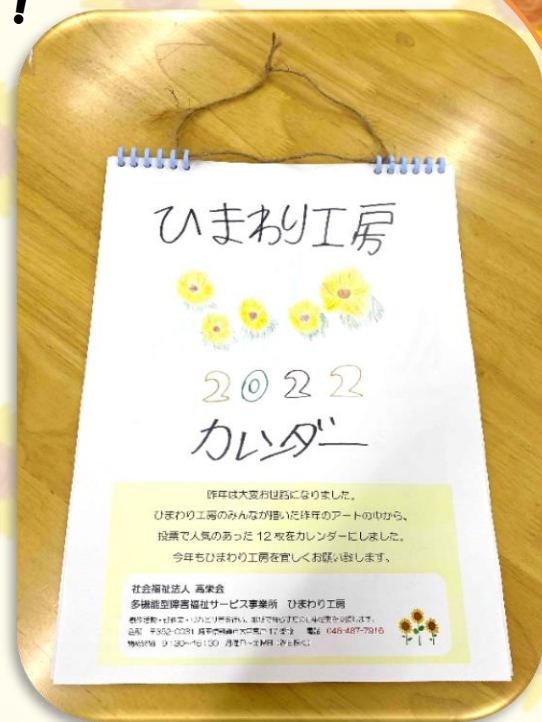 !
ひまわり工房
2022
カレンダー
昨年は大変お世話になりました。
ひまわり工房のみんなが描いた昨年のアートの中から、
投票で人気のあった 12 枚をカレンダーにしました。
今年もひまわり工房を宜しくお願い致します、
社会福祉法人 高栄会
多機能型障害福祉サービス事業所 ひまわり工房
〒352-0031 電話 048-487-7916
9:30~16:30